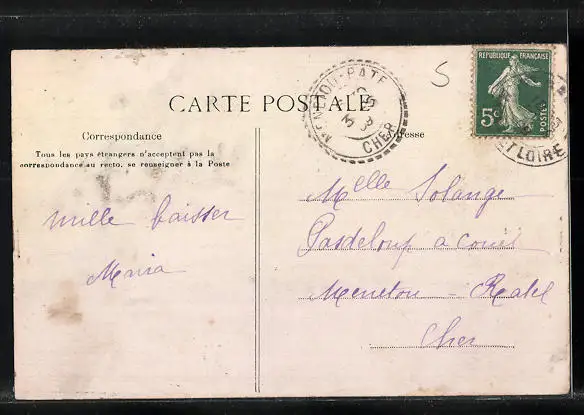 CARTE POSTALE
Correspondance
Tous les pays étrangers n'acceptent pas la
correspondance au recto, se renseigner à la Poste
mille baisser
Maria
RÉPUBLIQUE FRANÇAISE
5c
POSTES
CHER
ET LOIRE
5
Melle Solange
Pasdeloup a
Menetou - Ratel
Cher